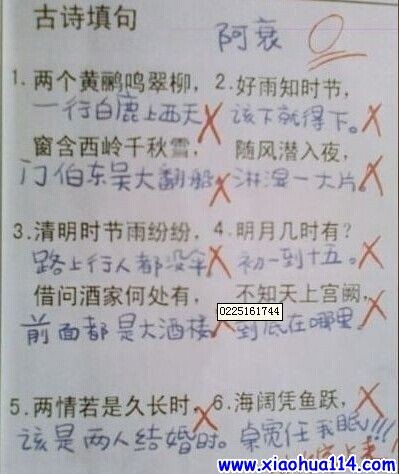 古诗填句
阿衰
0
1. 两个黄鹂鸣翠柳，
一行白鹿上西天
窗含西岭千秋雪，
门伯东吴大翻船
2. 好雨知时节，
该下就得下。
随风潜入夜，
淋湿一大片。
3. 清明时节雨纷纷，
路上行人都没伞
借问酒家何处有，
前面都是大酒楼
4. 明月几时有？
初一到十五。
不知天上宫阙，
0225161744
到底在哪里。
5. 两情若是久长时，
该是两人结婚时。
6. 海阔凭鱼跃，
桌宽任我眠!!!
www.xiaohua114.com